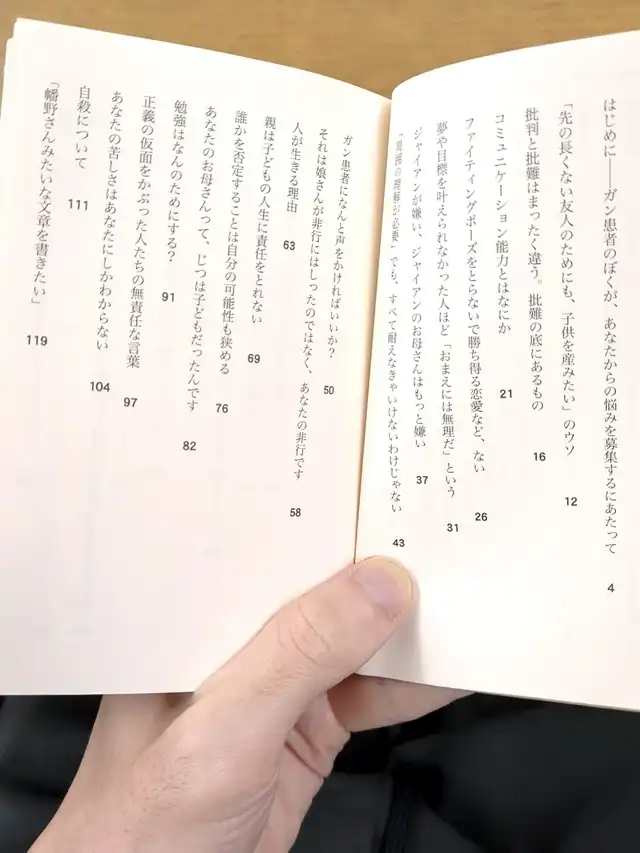 はじめに――ガン患者のぼくが、あなたからの悩みを募集するにあたって 4
「先の長くない友人のためにも、子供を産みたい」のウソ 12
批判と批難はまったく違う。批難の底にあるもの 16
コミュニケーション能力とはなにか 21
ファイティングポーズをとらないで勝ち得る恋愛など、ない 26
夢や目標を叶えられなかった人ほど「おまえには無理だ」という 31
ジャイアンが嫌い、ジャイアンのお母さんはもっと嫌い 37
「周囲の理解が必要」でも、すべて耐えなきゃいけないわけじゃない 43
ガン患者になんと声をかければいいか? 50
それは娘さんが非行にはしったのではなく、あなたの非行です 58
人が生きる理由 63
親は子どもの人生に責任をとれない 69
誰かを否定することは自分の可能性も狭める 76
あなたのお母さんって、じつは子どもだったんです 82
勉強はなんのためにする? 91
正義の仮面をかぶった人たちの無責任な言葉 97
あなたの苦しさはあなたにしかわからない 104
自殺について 111
「幡野さんみたいな文章を書きたい」 119